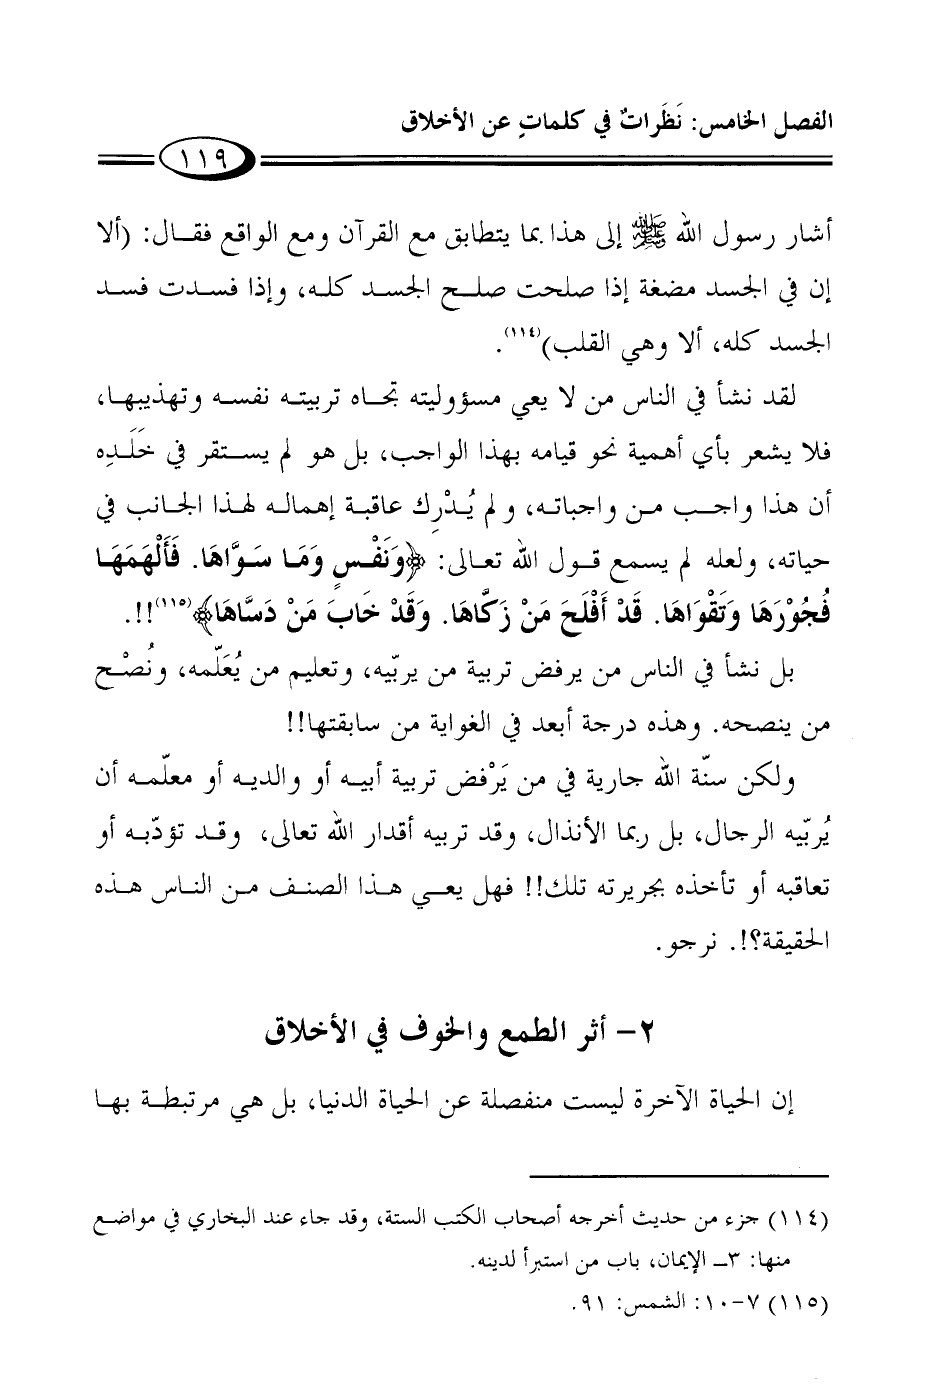 الفصل الخامس: نَظَراتٌ في كلماتٍ عن الأخلاق
١١٩
أشار رسول الله ﷺ إلى هذا بما يتطابق مع القرآن ومع الواقع فقال: (ألا
إن في الجسد مضغة إذا صلحت صلح الجسد كله، وإذا فسدت فسد
الجسد كله، ألا وهي القلب)(١١٤).
لقد نشأ في الناس من لا يعي مسؤوليته تجاه تربيته نفسه وتهذيبها،
فلا يشعر بأي أهمية نحو قيامه بهذا الواجب، بل هو لم يستقر في خَلَدِه
أن هذا واجب من واجباته، ولم يُدْرِك عاقبة إهماله لهذا الجانب في
حياته، ولعله لم يسمع قول الله تعالى: ﴿وَنَفْسٍ وَمَا سَوَّاهَا. فَأَلْهَمَهَا
فُجُوْرَهَا وَتَقْوَاهَا. قَدْ أَفْلَحَ مَنْ زَكَّاهَا. وَقَدْ خَابَ مَنْ دَسَّاهَا﴾(١١٥)!!.
بل نشأ في الناس من يرفض تربية من يربّيه، وتعليم من يُعَلّمه، ونُصْح
من ينصحه. وهذه درجة أبعد في الغواية من سابقتها!!
ولكن سنّة الله جارية في من يَرْفض تربية أبيه أو والديه أو معلّمه أن
يُربّيه الرجال، بل ربما الأنذال، وقد تربيه أقدار الله تعالى، وقد تؤدّبه أو
تعاقبه أو تأخذه بجريرته تلك!! فهل يعي هذا الصنف من الناس هذه
الحقيقة؟!. نرجو.
٢- أثر الطمع والخوف في الأخلاق
إن الحياة الآخرة ليست منفصلة عن الحياة الدنيا، بل هي مرتبطة بها
(١١٤) جزء من حديث أخرجه أصحاب الكتب الستة، وقد جاء عند البخاري في مواضع
منها: ٣ـ الإيمان، باب من استبرأ لدينه.
(١١٥) ٧-١٠: الشمس: ٩١.